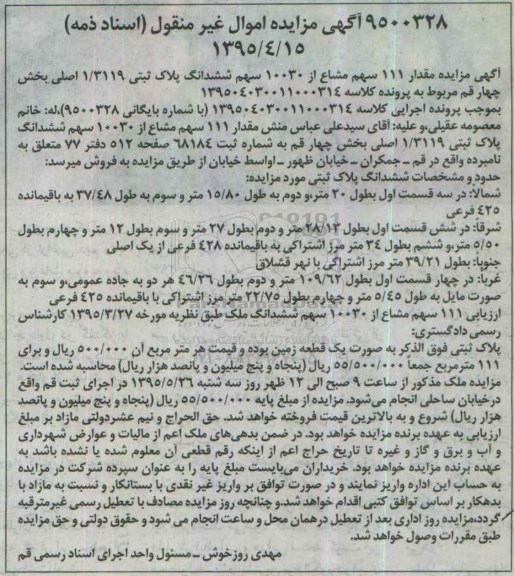 ۹۵۰۰۳۲۸ آگهی مزایده اموال غیر منقول (اسناد ذمه)
۱۳۹۵/۴/۱۵
آگهی مزایده مقدار ۱۱۱ سهم مشاع از ۱۰۰۳۰ سهم ششدانگ پلاک ثبتی ۱/۳۱۱۹ اصلی بخش
چهار قم مربوط به پرونده کلاسه ۱۳۹۵۰۴۰۳۰۰۱۱۰۰۰۳۱۴
بموجب پرونده اجرایی کلاسه ۱۳۹۵۰۴۰۳۰۰۱۱۰۰۰۳۱۴ (با شماره بایگانی ۹۵۰۰۳۲۸)،له: خانم
معصومه عقیلی،و علیه: آقای سیدعلی عباس منش مقدار ۱۱۱ سهم مشاع از ۱۰۰۳۰ سهم ششدانگ
پلاک ثبتی ۱/۳۱۱۹ اصلی بخش چهار قم به شماره ثبت ۶۸۱۸۴ صفحه ۵۱۲ دفتر ۷۷ متعلق به
نامبرده واقع در قم ـ جمکران ـ خیابان ظهور ـ اواسط خیابان از طریق مزایده به فروش میرسد:
حدود و مشخصات ششدانگ پلاک ثبتی مورد مزایده:
شمالا: در سه قسمت اول بطول ۲۰ متر،و دوم به طول ۱۵/۸۰ متر و سوم به طول ۳۷/۴۸ به باقیمانده
۴۲۵ فرعی
شرقا: در شش قسمت اول بطول ۲۸/۱۲ متر و دوم بطول ۲۷ متر و سوم بطول ۱۲ متر و چهارم بطول
۵/۵۰ متر،و ششم بطول ۳۴ متر مرز اشتراکی به باقیمانده ۴۲۸ فرعی از یک اصلی
جنوبا: بطول ۳۹/۲۱ متر مرز اشتراکی با نهر قشلاق
غربا: در چهار قسمت اول بطول ۱۰۹/۶۲ متر و دوم بطول ۴۶/۲۶ هر دو به جاده عمومی،و سوم به
صورت مایل به طول ۵/۴۵ متر و چهارم بطول ۲۲/۷۵ متر مرز اشتراکی با باقیمانده ۴۲۵ فرعی
ارزیابی ۱۱۱ سهم مشاع از ۱۰۰۳۰ سهم ششدانگ ملک طبق نظریه مورخه ۱۳۹۵/۳/۲۷ کارشناس
رسمی دادگستری:
پلاک ثبتی فوق الذکر به صورت یک قطعه زمین بوده و قیمت هر متر مربع آن ۵۰۰/۰۰۰ ریال و برای
۱۱۱ مترمربع جمعاً ۵۵/۵۰۰/۰۰۰ ریال (پنجاه و پنج میلیون و پانصد هزار ریال) محاسبه شده است.
مزایده ملک مذکور از ساعت ۹ صبح الی ۱۲ ظهر روز سه شنبه ۱۳۹۵/۵/۲۶ در اجرای ثبت قم واقع
درخیابان ساحلی انجام می‌شود. مزایده از مبلغ پایه ۵۵/۵۰۰/۰۰۰ ریال (پنجاه و پنج میلیون و پانصد
هزار ریال) شروع و به بالاترین قیمت فروخته خواهد شد. حق الحراج و نیم عشردولتی مازاد بر مبلغ
ارزیابی به عهده برنده مزایده خواهد بود. در ضمن بدهی‌های ملک اعم از مالیات و عوارض شهرداری
و آب و برق و گاز و غیره تا تاریخ حراج اعم از اینکه رقم قطعی آن معلوم شده یا نشده باشد به
عهده برنده مزایده خواهد بود. خریداران می‌بایست مبلغ پایه را به عنوان سپرده شرکت در مزایده
به حساب این اداره واریز نمایند و در صورت توافق بر واریز غیر نقدی با بستانکار و نسبت به مازاد با
بدهکار بر اساس توافق کتبی اقدام خواهد شد.و چنانچه روز مزایده مصادف با تعطیل رسمی غیرمترقبه
گردد،مزایده روز اداری بعد از تعطیل درهمان محل و ساعت انجام می شود و حقوق دولتی و حق مزایده
طبق مقررات وصول خواهد شد.
مهدی روزخوش ـ مسئول واحد اجرای اسناد رسمی قم